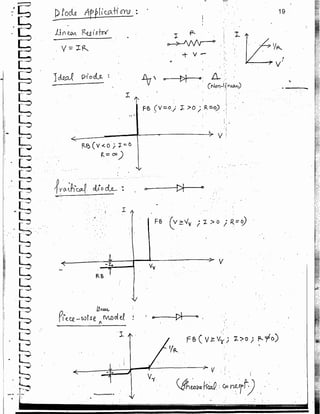 19
Diode Applications :
Linear Resistor
I R
+ V -
I
1/R
V
V = IR
Ideal Diode :
(Non-linear)
I
FB (V=0; I>0; R=0)
V
RB (V<0; I=0
R=∞)
Practical diode :
I
FB (V≥Vγ ; I>0 ; R=0)
V
Vγ
RB
Linear
Piece-wise model :
I
FB (V≥Vγ; I>0; R≠0)
1/R
V
Vγ
(Theoretical concept.)